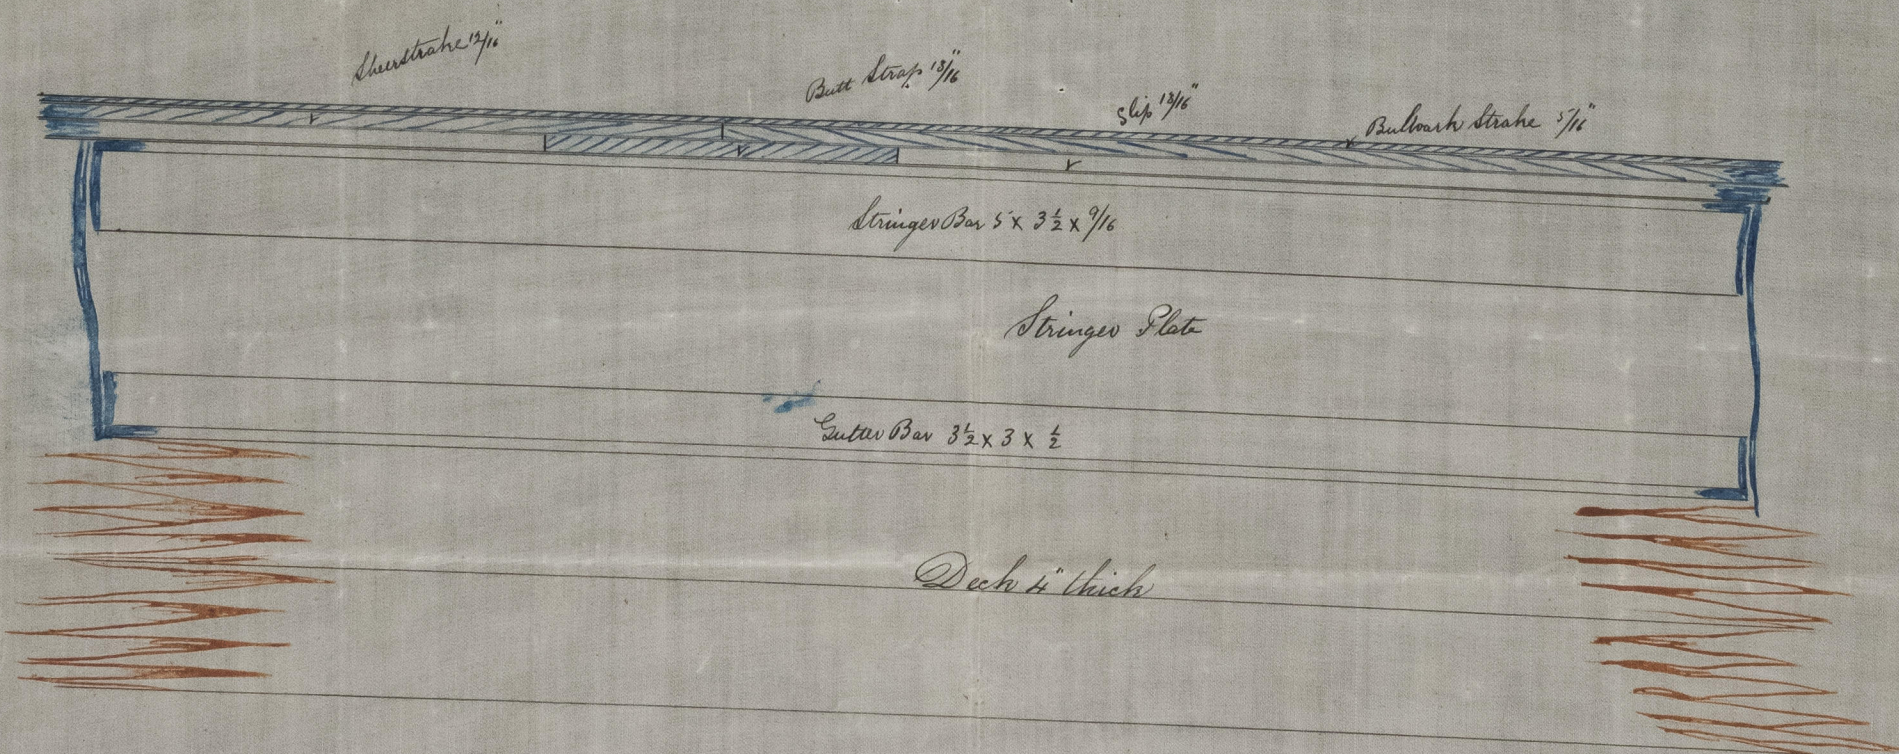 Sheerstrake 12/16"
Butt Strap 13/16"
Slip 13/16"
Bulwark Strake 5/16"
Stringer Bar 5 x 3 1/2 x 9/16
Stringer Plate
Gutter Bar 3 1/2 x 3 x 1/2
Deck 4" thick